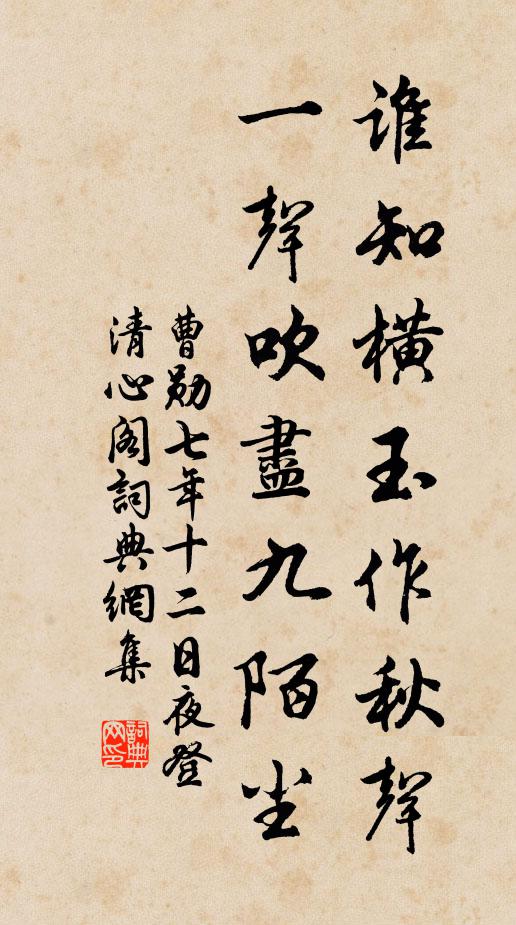 誰知橫玉作秋聲
一聲吹盡九陌尘
曹勛七年十二日夜登
清心閣詞典網集
詞典網印